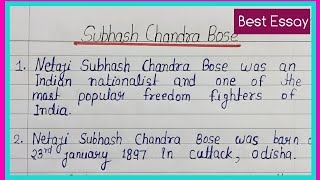 Best Essay
Subhash Chandra Bose
1. Netaji Subhash Chandra Bose was an
Indian nationalist and one of the
most popular freedom fighters of
India.
2. Netaji Subhash Chandra Bose was born
23rd january 1897 in Cuttack, Odisha.